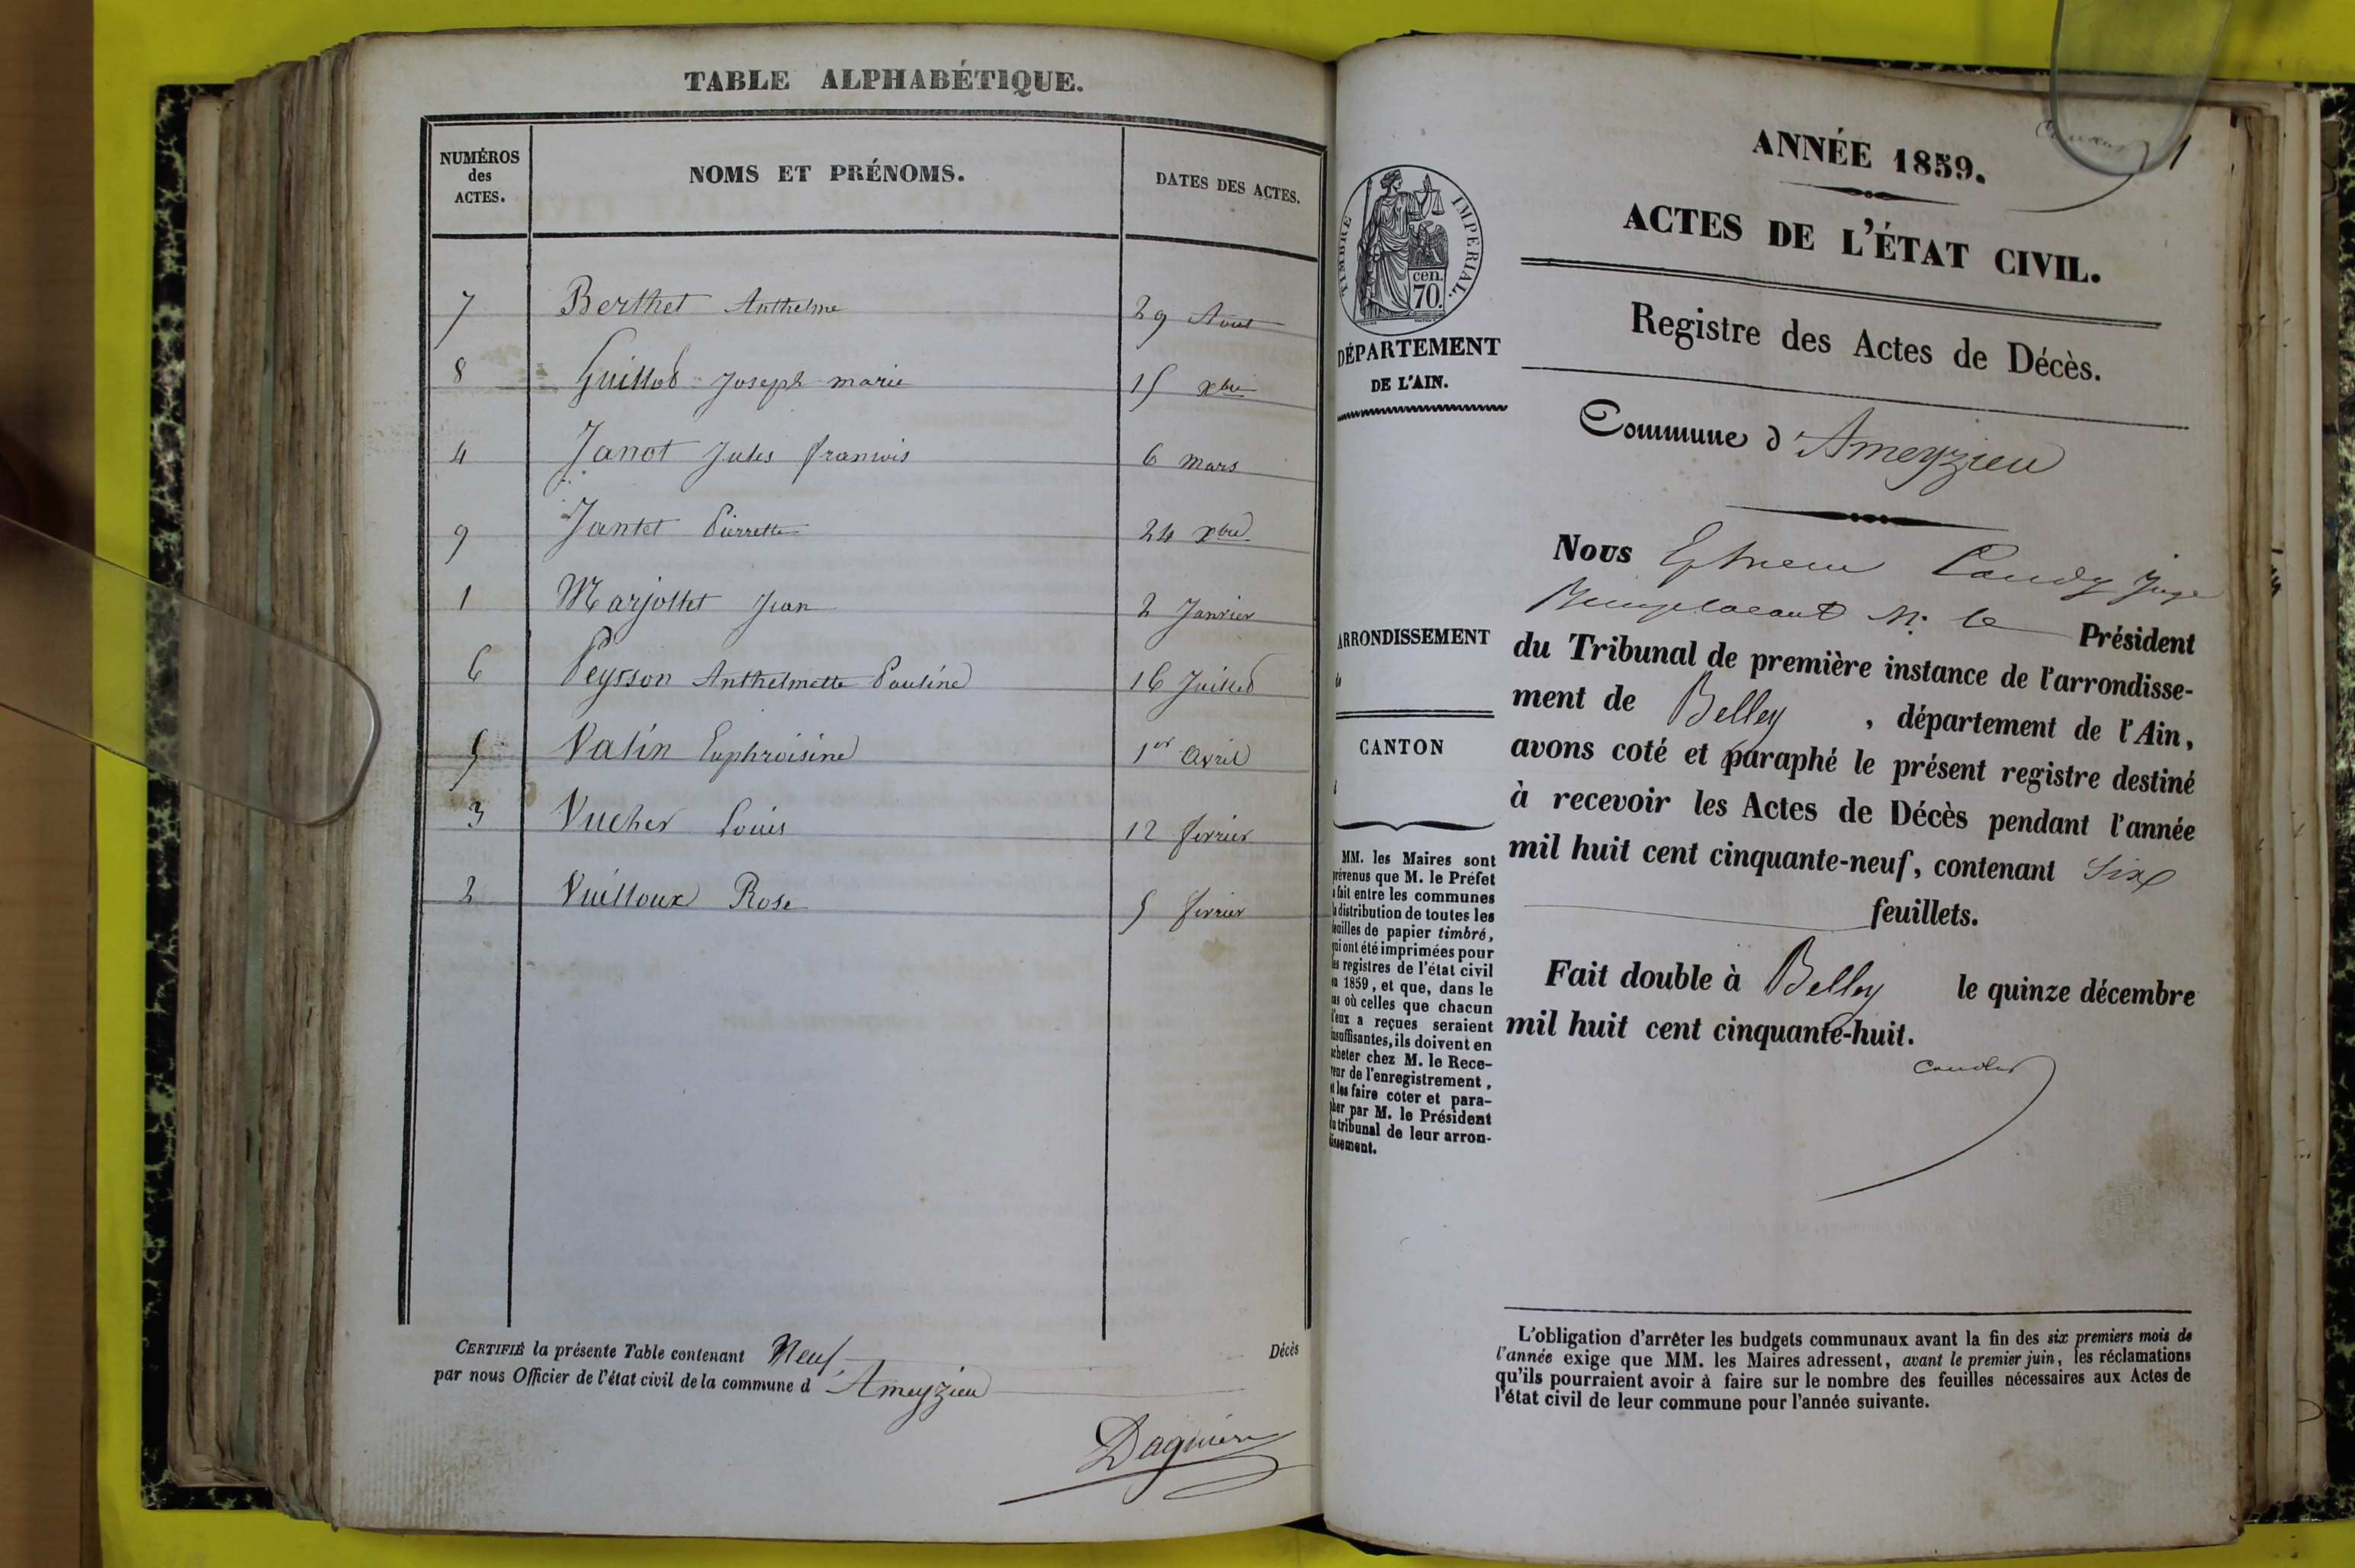 TABLE ALPHABÉTIQUE.
NUMÉROS
des
ACTES.
NOMS ET PRÉNOMS.
DATES DES ACTES.
7 Berthet Anthelme 29 Aout
8 Guillod Joseph marie 15 xbre
4 Janot Jules francois 6 mars
9 Jantet Pierrette 24 xbre
1 Marjollet Jean 2 Janvier
6 Peysson Anthelmette Pauline 16 Juillet
5 Valin Euphroisine 1er avril
3 Vucher Louis 12 fevrier
2 Vuilloux Rose 5 fevrier
CERTIFIÉ la présente Table contenant Neuf Décès
par nous Officier de l'état civil de la commune d Ameyzieu
ANNÉE 1859.
1
ACTES DE L'ÉTAT CIVIL.
Registre des Actes de Décès.
Commune d'Ameyzieu
TIMBRE IMPERIAL.
cen.
70.
DÉPARTEMENT
DE L'AIN.
ARRONDISSEMENT
CANTON
MM. les Maires sont
prévenus que M. le Préfet
a fait entre les communes
la distribution de toutes les
feuilles de papier timbré,
qui ont été imprimées pour
les registres de l'état civil
en 1859, et que, dans le
cas où celles que chacun
d'eux a reçues seraient
insuffisantes, ils doivent en
acheter chez M. le Rece-
veur de l'enregistrement,
et les faire coter et para-
pher par M. le Président
du tribunal de leur arron-
dissement.
Nous Juge
Remplacant M. le Président
du Tribunal de première instance de l'arrondisse-
ment de Belley, département de l'Ain,
avons coté et paraphé le présent registre destiné
à recevoir les Actes de Décès pendant l'année
mil huit cent cinquante-neuf, contenant Six
feuillets.
Fait double à Belley le quinze décembre
mil huit cent cinquante-huit.
L'obligation d'arrêter les budgets communaux avant la fin des six premiers mois de
l'année exige que MM. les Maires adressent, avant le premier juin, les réclamations
qu'ils pourraient avoir à faire sur le nombre des feuilles nécessaires aux Actes de
l'état civil de leur commune pour l'année suivante.